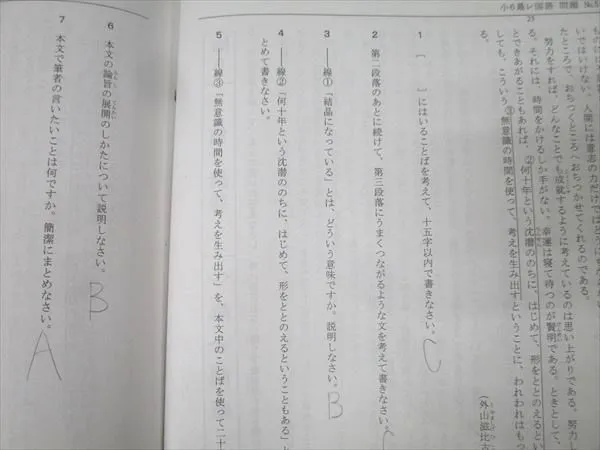 小6最レ国語 問題 №5
25
いではいけない。人間には意志の力だけではどうにもならない
たところで、おちつくところへおちつかせてくれるのである。
努力をすれば、どんなことでも成就するように考えているのは思い上がりである。努力し
る。それには、時間をかけるしか手がない。幸運は寝て待つのが賢明である。ときとして、
とできあがることもあれば、②何十年という沈潜ののちに、はじめて、形をととのえるとい
しても、こういう③無意識の時間を使って、考えを生み出すということに、われわれはもっ
る。
(外山滋比古
1 〔 〕にはいることばを考えて、十五字以内で書きなさい。
C
2 第二段落のあとに続けて、第三段落にうまくつながるような文を考えて書きなさい。
C
3 ――線①「結晶になっている」とは、どういう意味ですか。説明しなさい。
B
4 ――線②「何十年という沈潜ののちに、はじめて、形をととのえるということもある」
とめて書きなさい。
5 ――線③「無意識の時間を使って、考えを生み出す」を、本文中のことばを使って二十
6 本文の論旨の展開のしかたについて説明しなさい。
B
7 本文で筆者の言いたいことは何ですか。簡潔にまとめなさい。
A